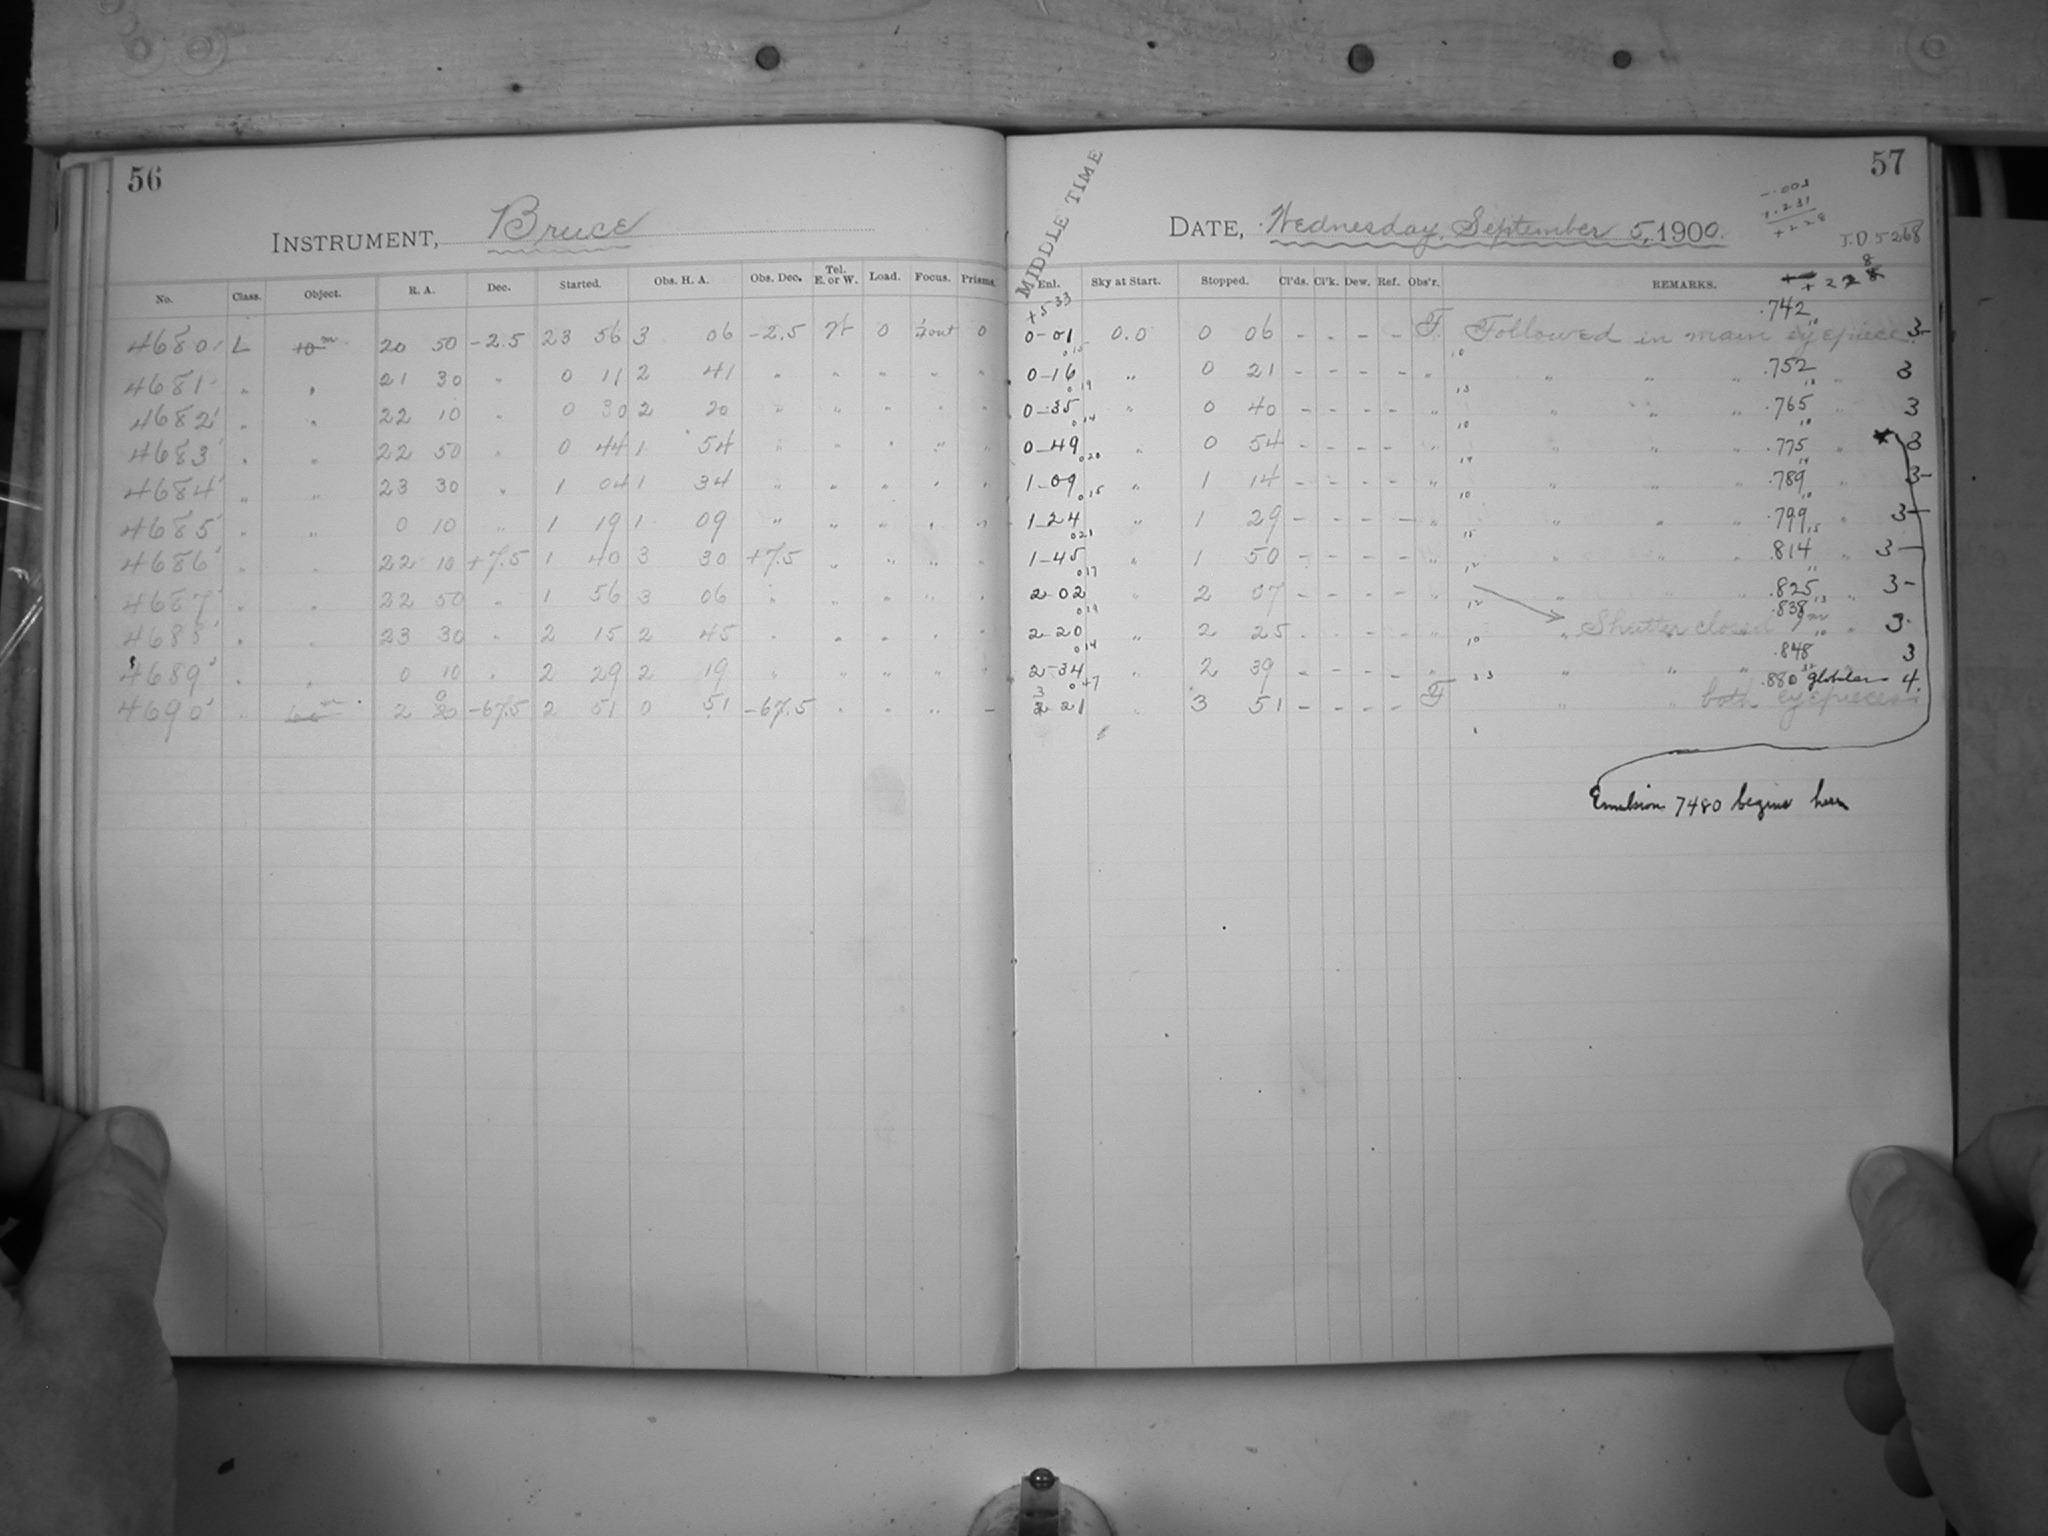 56
57
INSTRUMENT, Bruce
MIDDLE TIME
DATE, Wednesday, September 5, 1900.
J.D. 5268
No. Class. Object. R. A. Dec. Started. Obs. H. A. Obs. Dec. Tel. E. or W. Load. Focus. Prisms. Enl. Sky at Start. Stopped. Cl'ds. Cl'k. Dew. Ref. Obs'r. REMARKS.
+5 33
.742
4680 L 10m 20 50 -2.5 23 56 3 06 -2.5 0 0 0-01 0.0 0 06 - - - - F. Followed in main eyepiece. 3-
4681 " " 21 30 " 0 11 2 41 " " " " " 0-16 " 0 21 - - - - " " " " .752 " 3
4682 " " 22 10 " 0 30 2 20 " " " " " 0-35 " 0 40 - - - - " " " " .765 " 3
4683 " " 22 50 " 0 44 1 54 " " " " " 0-49 " 0 54 - - - - " " " " .775 " 3
4684 " " 23 30 " 1 04 1 34 " " " " " 1-09 " 1 14 - - - - " " " " .789 " 3-
4685 " " 0 10 " 1 19 1 09 " " " " " 1-24 " 1 29 - - - - " " " " .799 " 3-
4686 " " 22 10 +7.5 1 40 3 30 +7.5 " " " " 1-45 " 1 50 - - - - " " " " .814 " 3-
4687 " " 22 50 " 1 56 3 06 " " " " " 2-02 " 2 07 - - - - " " " " .825 " 3-
.838
4688 " " 23 30 " 2 15 2 45 " " " " " 2-20 " 2 25 - - - - " " Shutter closed 9m " 3-
4689 " " 0 10 " 2 29 2 19 " " " " " 2-34 " 2 39 - - - - " " " " .848 " 3
.880 globular 4
4690 " 60m 2 20 -67.5 2 51 0 51 -67.5 " " " - 3 21 " 3 51 - - - - F " " both eyepieces.
Emulsion 7480 begins here